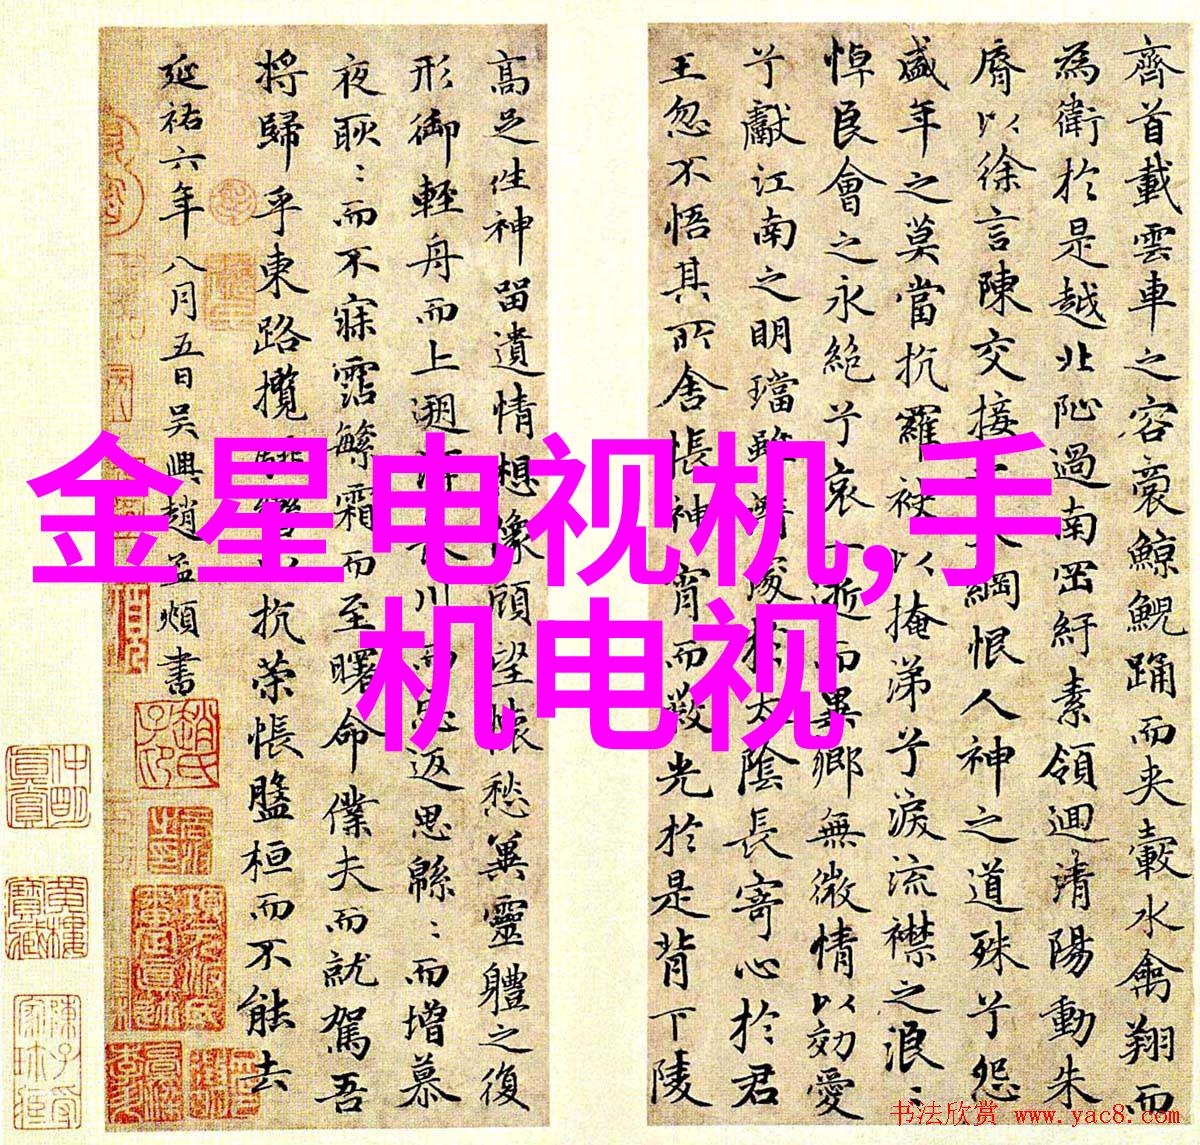 齊首載雲車之容裔鯨鯢踊而夾轂水禽翔而
為衛於是越北沚過南岡紆素領迴清陽動朱
脣以徐言陳交接之大綱恨人神之道殊兮怨
盛年之莫當抗羅袂以掩涕兮淚流襟之浪〻
悼良會之永絕兮哀一逝而異鄉無微情以効愛
兮獻江南之明璫雖潛處於太陰長寄心於君
王忽不悟其所舍悵神宵而蔽光於是背下陵
高足往神留遺情想像顧望懷愁冀靈體之復
形御輕舟而上遡浮長川而忘返思緜〻而增慕
夜耿〻而不寐霑繁霜而至曙命僕夫而就駕吾
將歸乎東路攬轡以抗策悵盤桓而不能去
延祐六年八月五日吳興趙孟頫書
金星电视机,手
机电视
书法欣赏 www.yac8.com